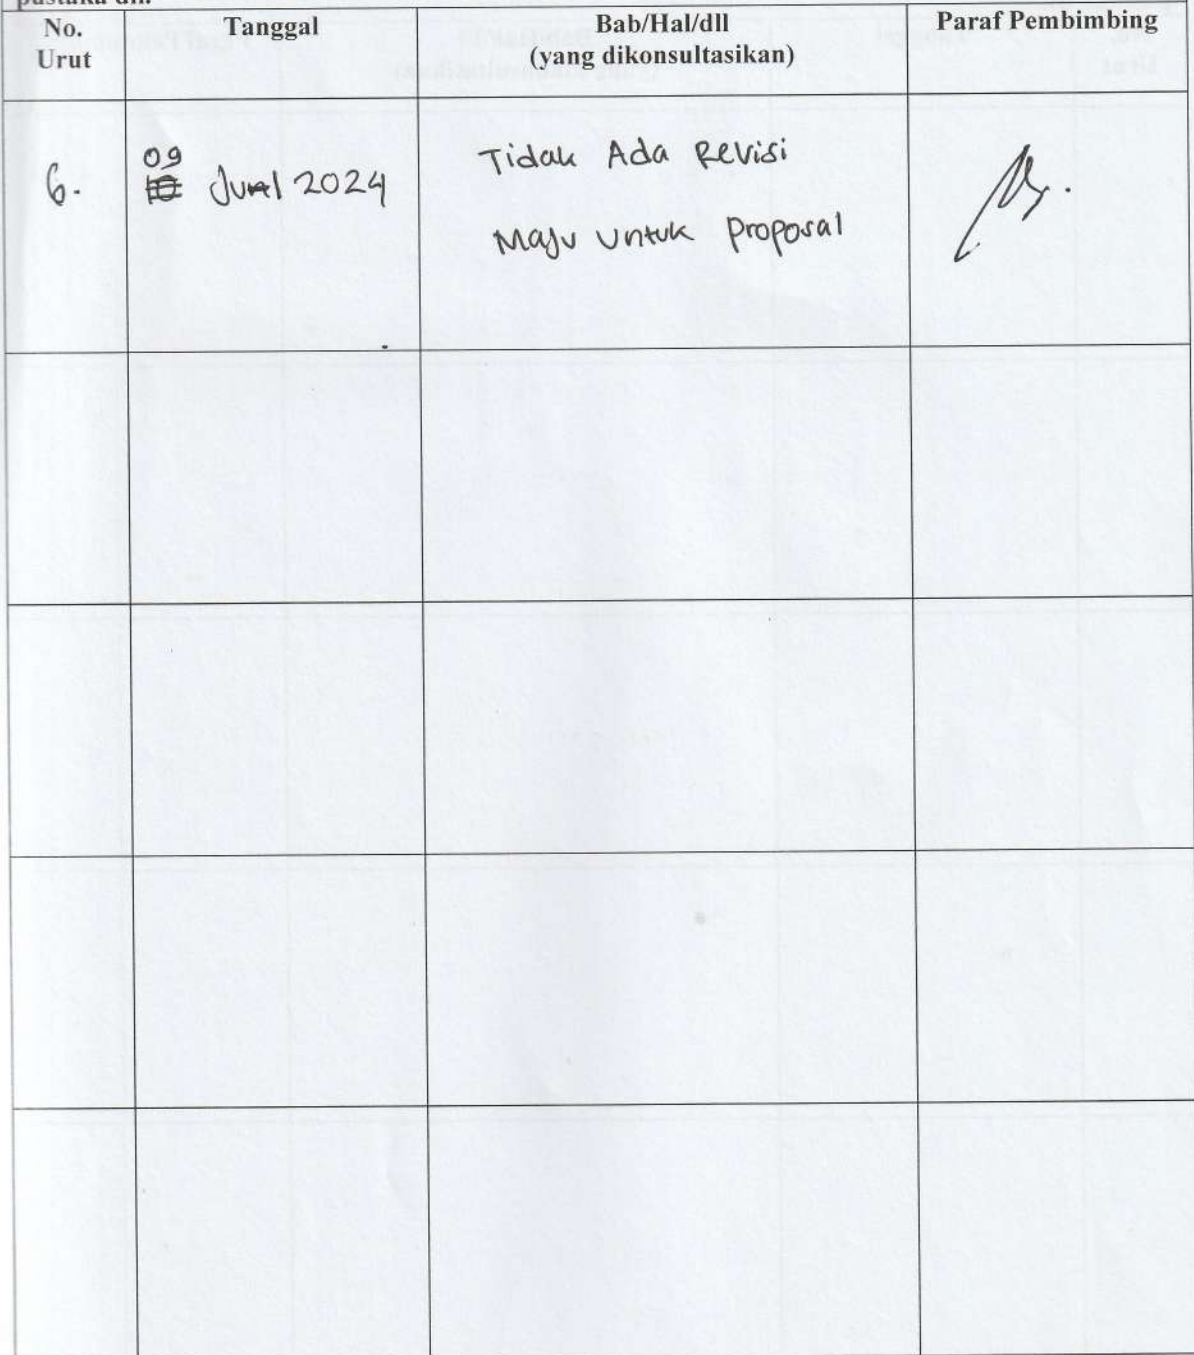 No.
Urut
Tanggal
Bab/Hal/dll
(yang dikonsultasikan)
Paraf Pembimbing
6.
09
2024
Tidak Ada Revisi
Maju untuk proposal